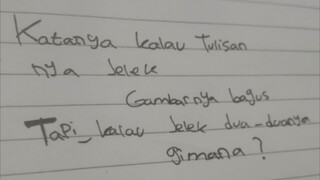 Katanya kalau Tulisan
nya Jelek
Gambarnya bagus
Tapi_ kalau Jelek dua-duanya
gimana?